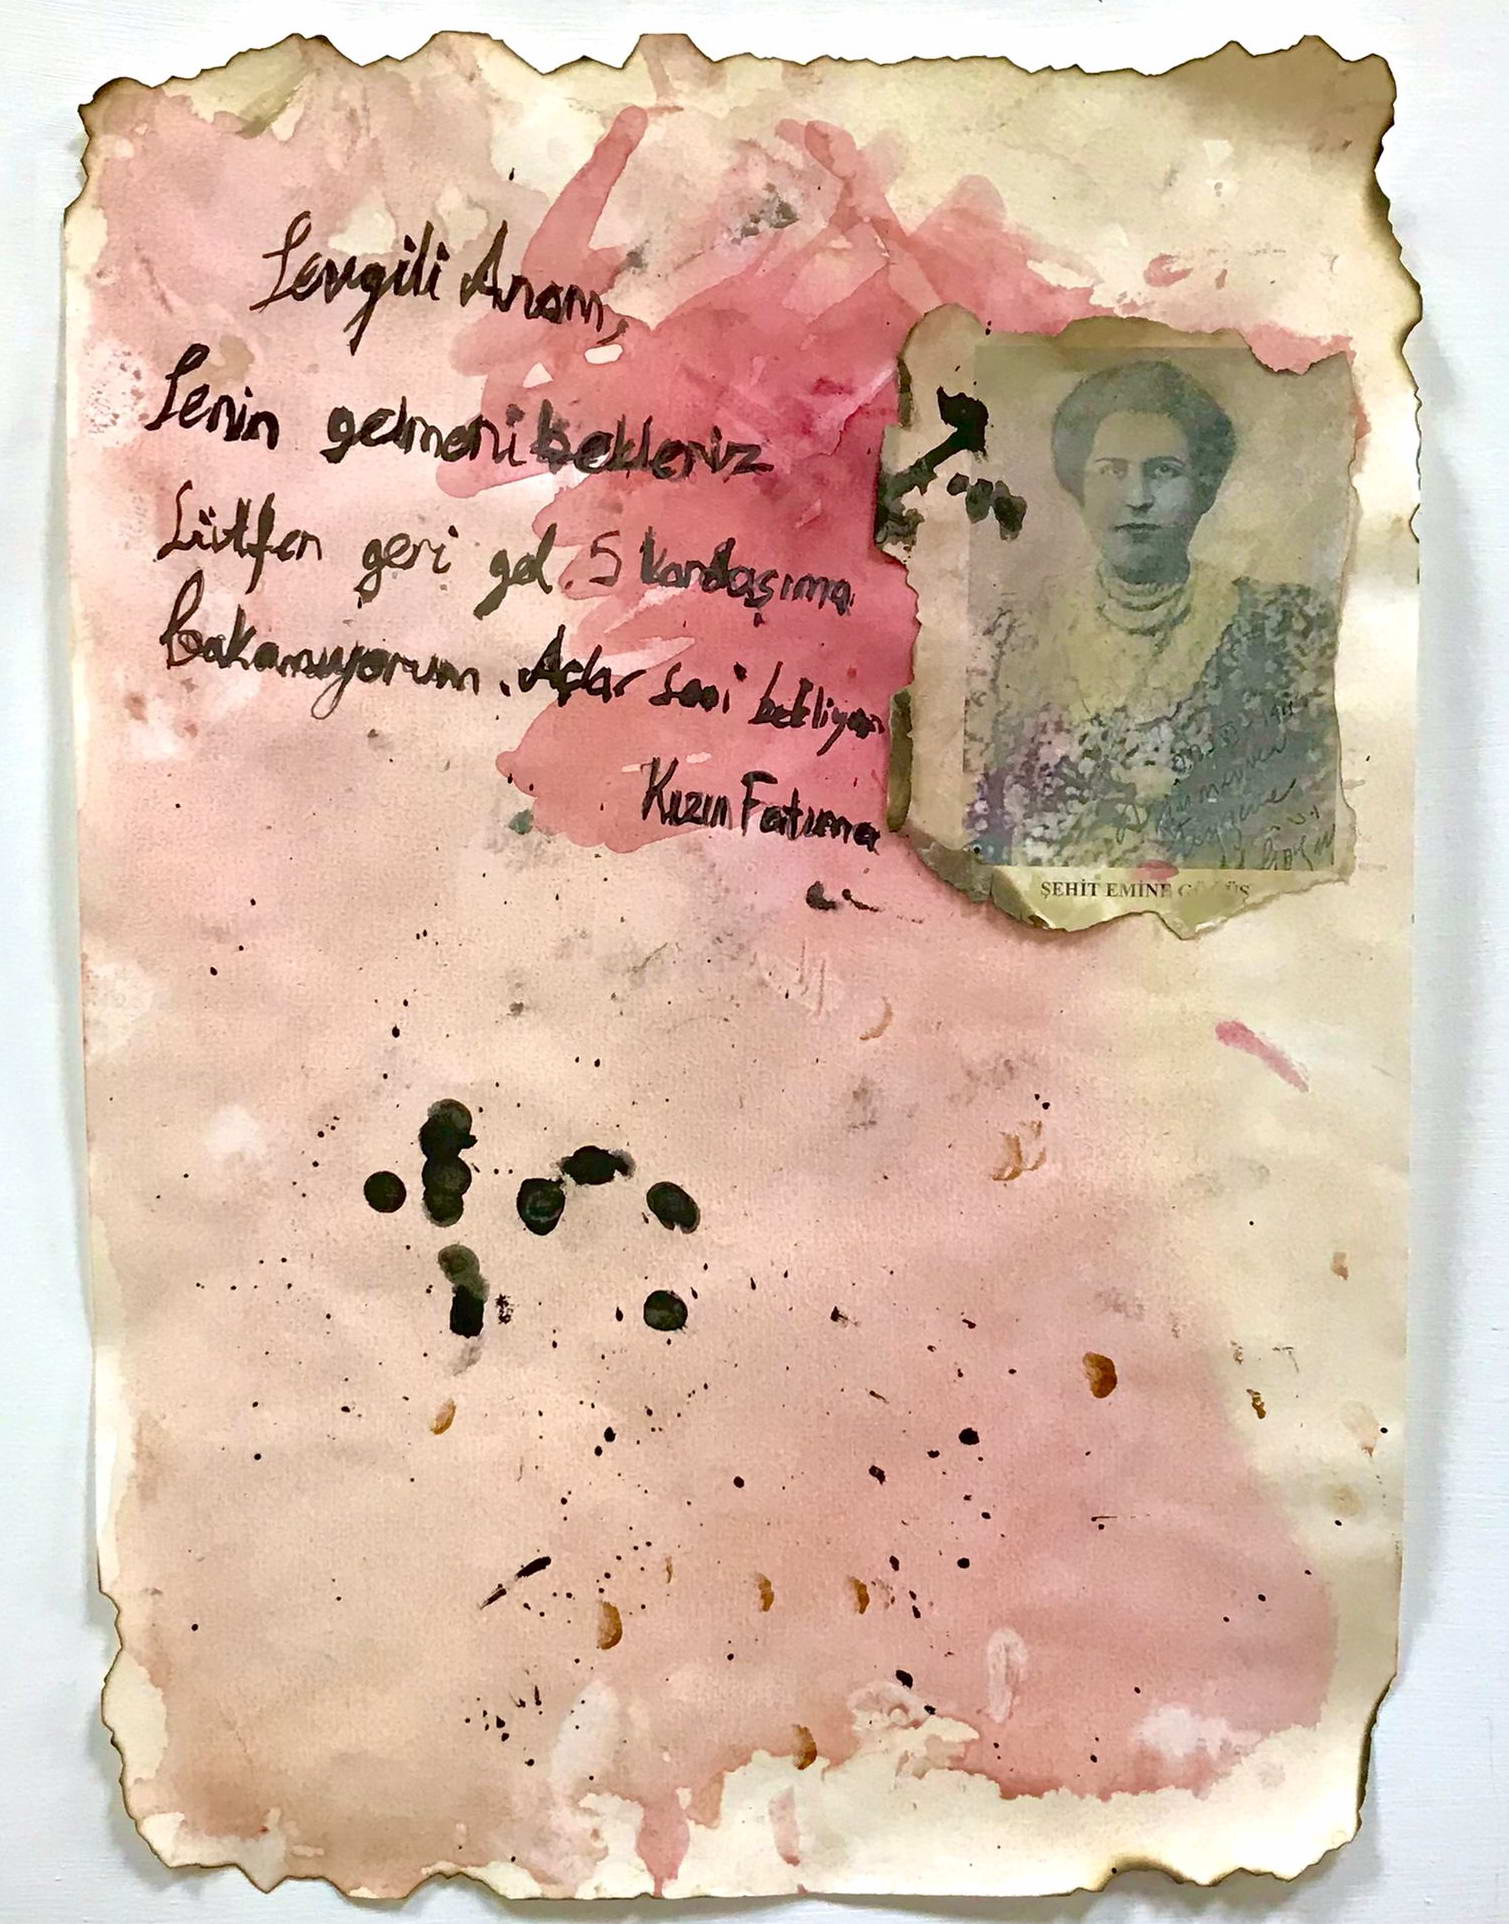 Sevgili Anam,
Senin gelmeni bekleriz
Lütfen geri gel. 5 kardaşıma
bakamıyorum. Açlar seni bekliyor
Kızın Fatıma
ŞEHİT EMİNE